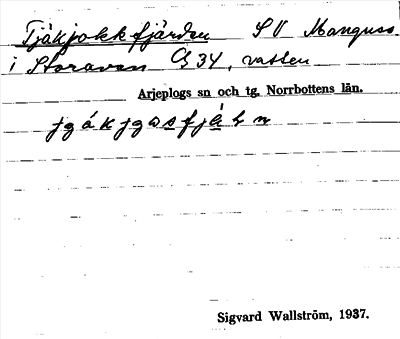 Tjäkjokkfjärden SV Manguss.
i Storavan G34, vatten
Arjeplogs sn och tg. Norrbottens län.
Sigvard Wallström, 1937.